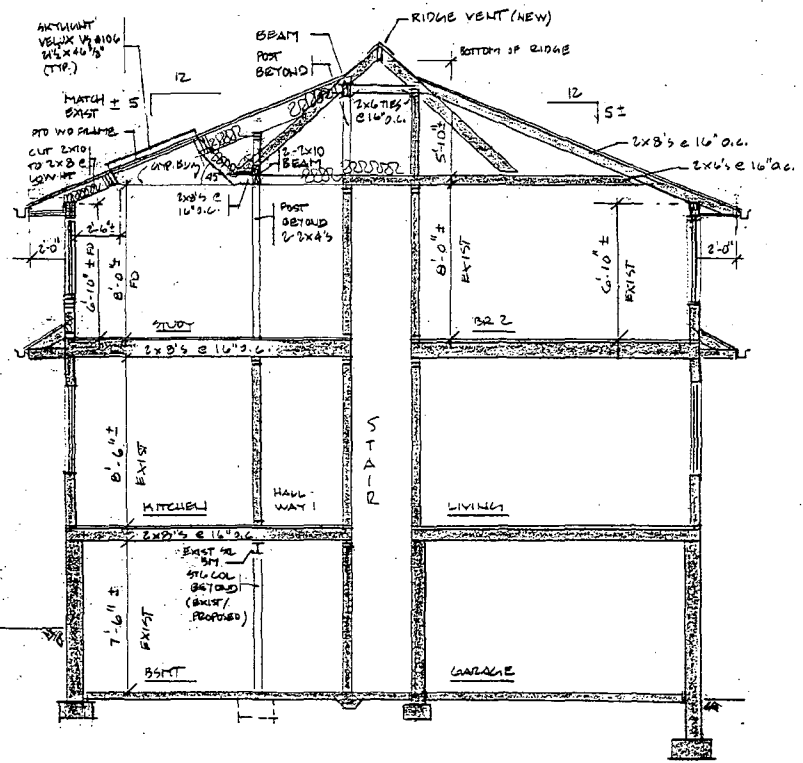 SKYLIGHT
VELUX VS #106
21½ X 46⅜"
(TYP.)
BEAM
POST
BEYOND
RIDGE VENT (NEW)
BOTTOM OF RIDGE
12
MATCH ± 5
EXIST
PTD WD FRAME
CUT 2X10
TO 2X8 @
LOW HT
GYP. BD.
45°
2-2X10
BEAM
2X6 TIES
@ 16" O.C.
5'-10" ±
12
5 ±
2X8'S @ 16" O.C.
2X6'S @ 16" O.C.
2X8'S @
16" O.C.
POST
BEYOND
2-2X4'S
2'-0"
2'-6" ±
6'-10" ± FD
8'-0" ± FD
8'-0" ±
EXIST
6'-10" ±
EXIST
2'-0"
STUDY
BR 2
2X8'S @ 16" O.C.
8'-6" ±
EXIST
STAIR
KITCHEN
HALL
WAY 1
LIVING
2X8'S @ 16" O.C.
EXIST STL
BM
STL COL
BEYOND
(EXIST/
PROPOSED)
7'-6" ±
EXIST
BSMT
GARAGE